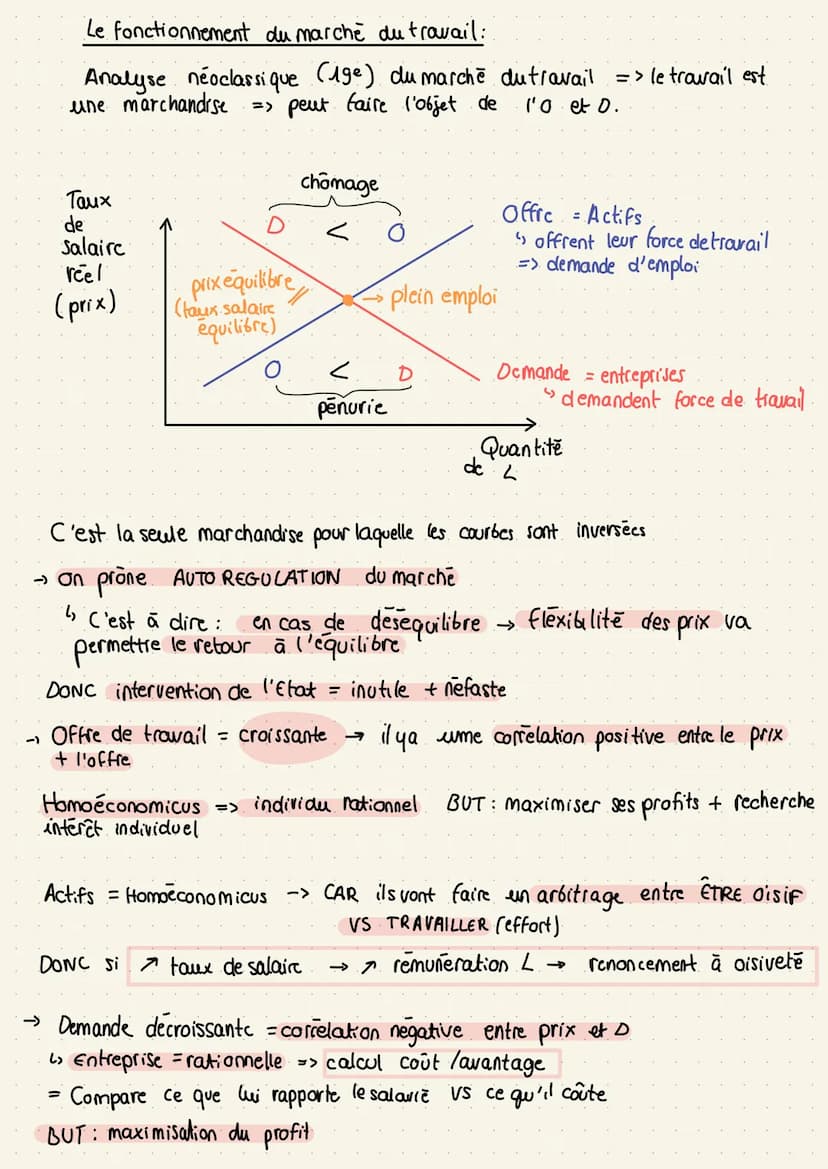 Le fonctionnement du marché du travail :
Analyse néoclassique (19e) du marché du travail => le travail est
une marchandise => peut faire l'objet de l'O et D.
chômage
Taux
de
salaire
réel
(prix)
D < O
Offre = Actifs
↳ offrent leur force de travail
=> demande d'emploi
prix équilibre
(taux salaire
équilibre)
→ plein emploi
O < D
pénurie
Demande = entreprises
↳ demandent force de travail
Quantité
de L
C'est la seule marchandise pour laquelle les courbes sont inversées
→ on prône AUTO REGULATION du marché
↳ C'est à dire : en cas de déséquilibre → flexibilité des prix va
permettre le retour à l'équilibre
DONC intervention de l'Etat = inutile + néfaste
→ Offre de travail = croissante → il y a une corrélation positive entre le prix
+ l'offre
Homoéconomicus => individu rationnel BUT : maximiser ses profits + recherche
intérêt individuel
Actifs = Homoéconomicus -> CAR ils vont faire un arbitrage entre ÊTRE oisif
VS TRAVAILLER (effort)
DONC si ↗ taux de salaire → ↗ rémunération L → renoncement à oisiveté
→ Demande décroissante = corrélation négative entre prix et D
↳ Entreprise = rationnelle => calcul coût / avantage
= Compare ce que lui rapporte le salarié VS ce qu'il coûte
BUT : maximisation du profit